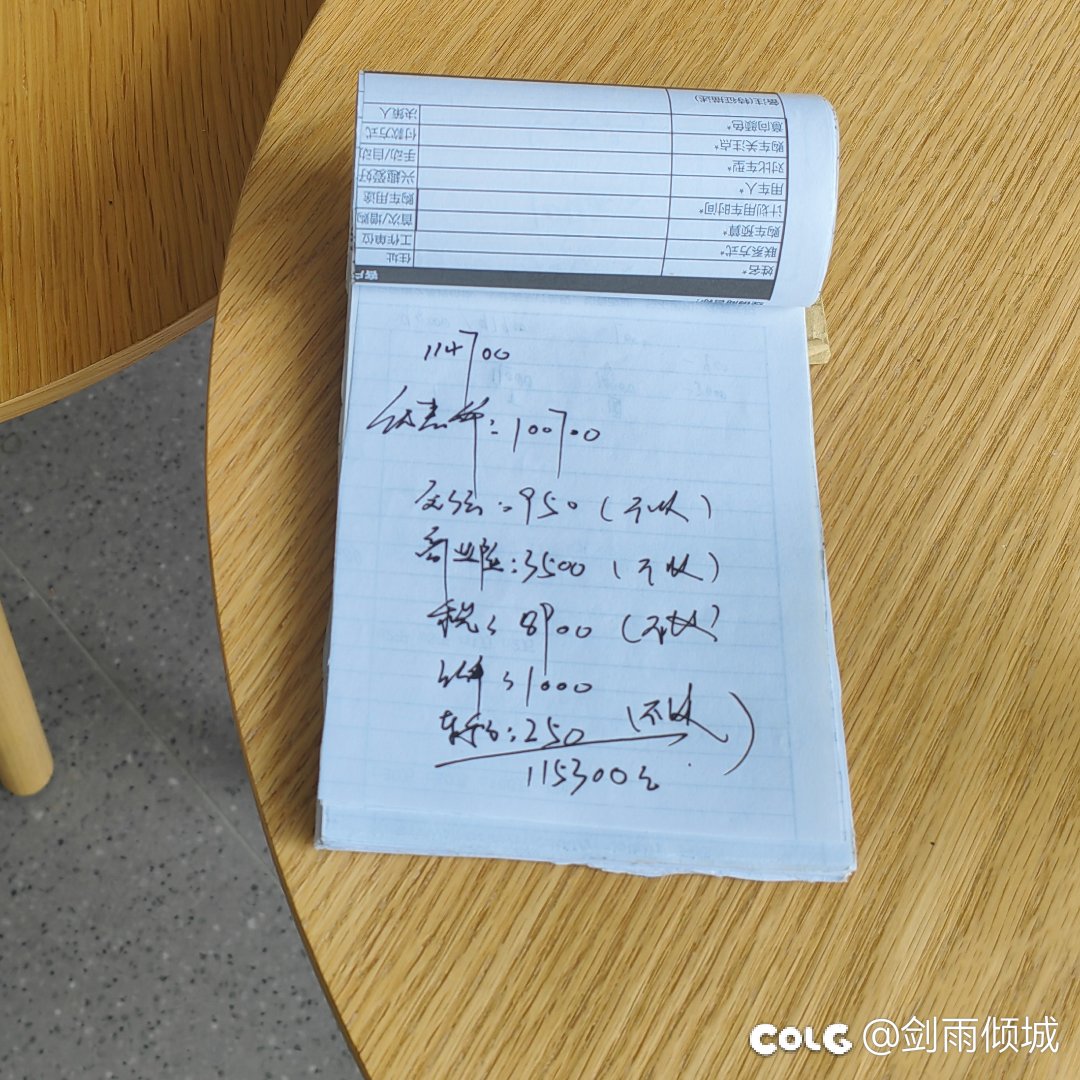 备注(特征描述)
意向颜色*
决策人
购车关注点*
付款方式
对比车型*
手动/自动
用车人*
兴趣爱好
计划用车时间*
购车用途
购车预算*
首次/增购
联系方式*
工作单位
姓名*
住址
客户
114700
优惠价:100700
交强:950(不收)
商业险:3500(不收)
税:8900(不收)
:1000
:250(不收)
115300元
COLG @剑雨倾城